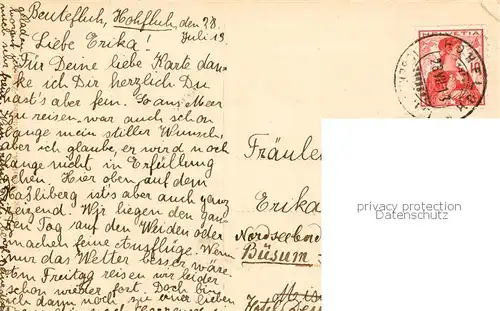 Beutefluh, Hohfluh, den 28.
Juli 13
Liebe Erika!
Für Deine liebe Karte dan-
ke ich Dir herzlich Du
hast's aber fein. So ans Meer
zu reisen war auch schon
lange mein stiller Wunsch,
aber ich glaube, er wird noch
lange nicht in Erfüllung
gehen. Hier oben auf dem
Hasliberg ist's aber auch ganz
reizend. Wir liegen den gan-
zen Tag auf den Weiden oder
machen feine Ausflüge. Wenn
nur das Wetter besser wäre.
Am Freitag reisen wir leider
schon wieder fort. Doch bin
ich dann noch, zu einer lieben
HELVETIA
Fräulein
Erika
Nordseebad
Büsum
privacy protection
Datenschutz